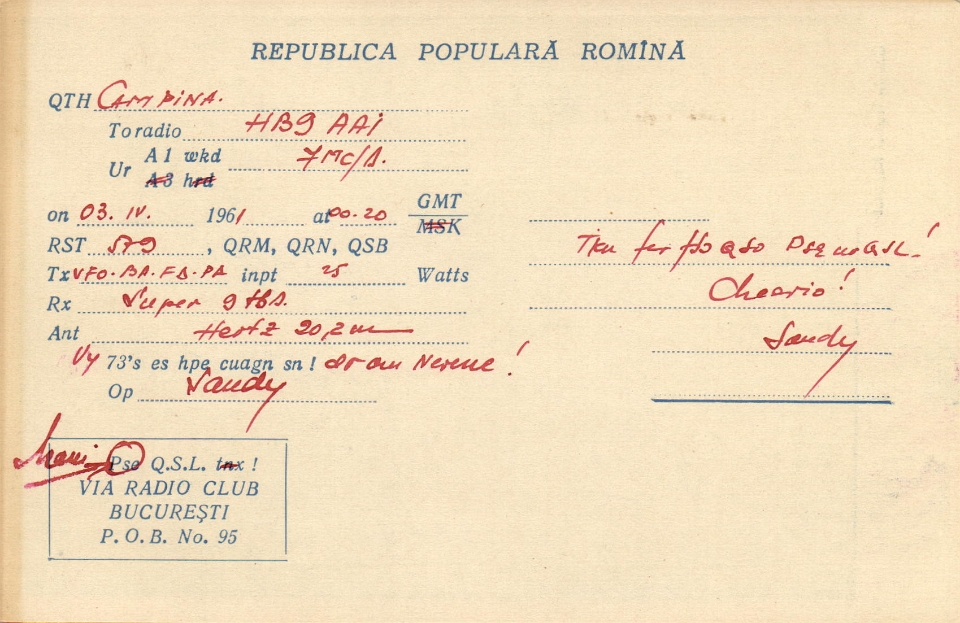 REPUBLICA POPULARĂ ROMÎNĂ
QTH CAMPINA.
To radio HB9 AAI
Ur A1 wkd 7 Mc/s.
A3 hrd
on 03. IV. 1961 at 00.20 GMT
MSK
RST 579, QRM, QRN, QSB
Tx VFO-BA-FD-PA inpt 25 Watts
Rx Super 9 tbs.
Ant Hertz 20,2 m
Vy 73's es hpe cuagn sn! dr om !
Op Sandy
Tku fer QSO Pse QSL!
Cheerio!
Sandy
Pse Q.S.L. tnx !
VIA RADIO CLUB
BUCUREŞTI
P.O.B. No. 95